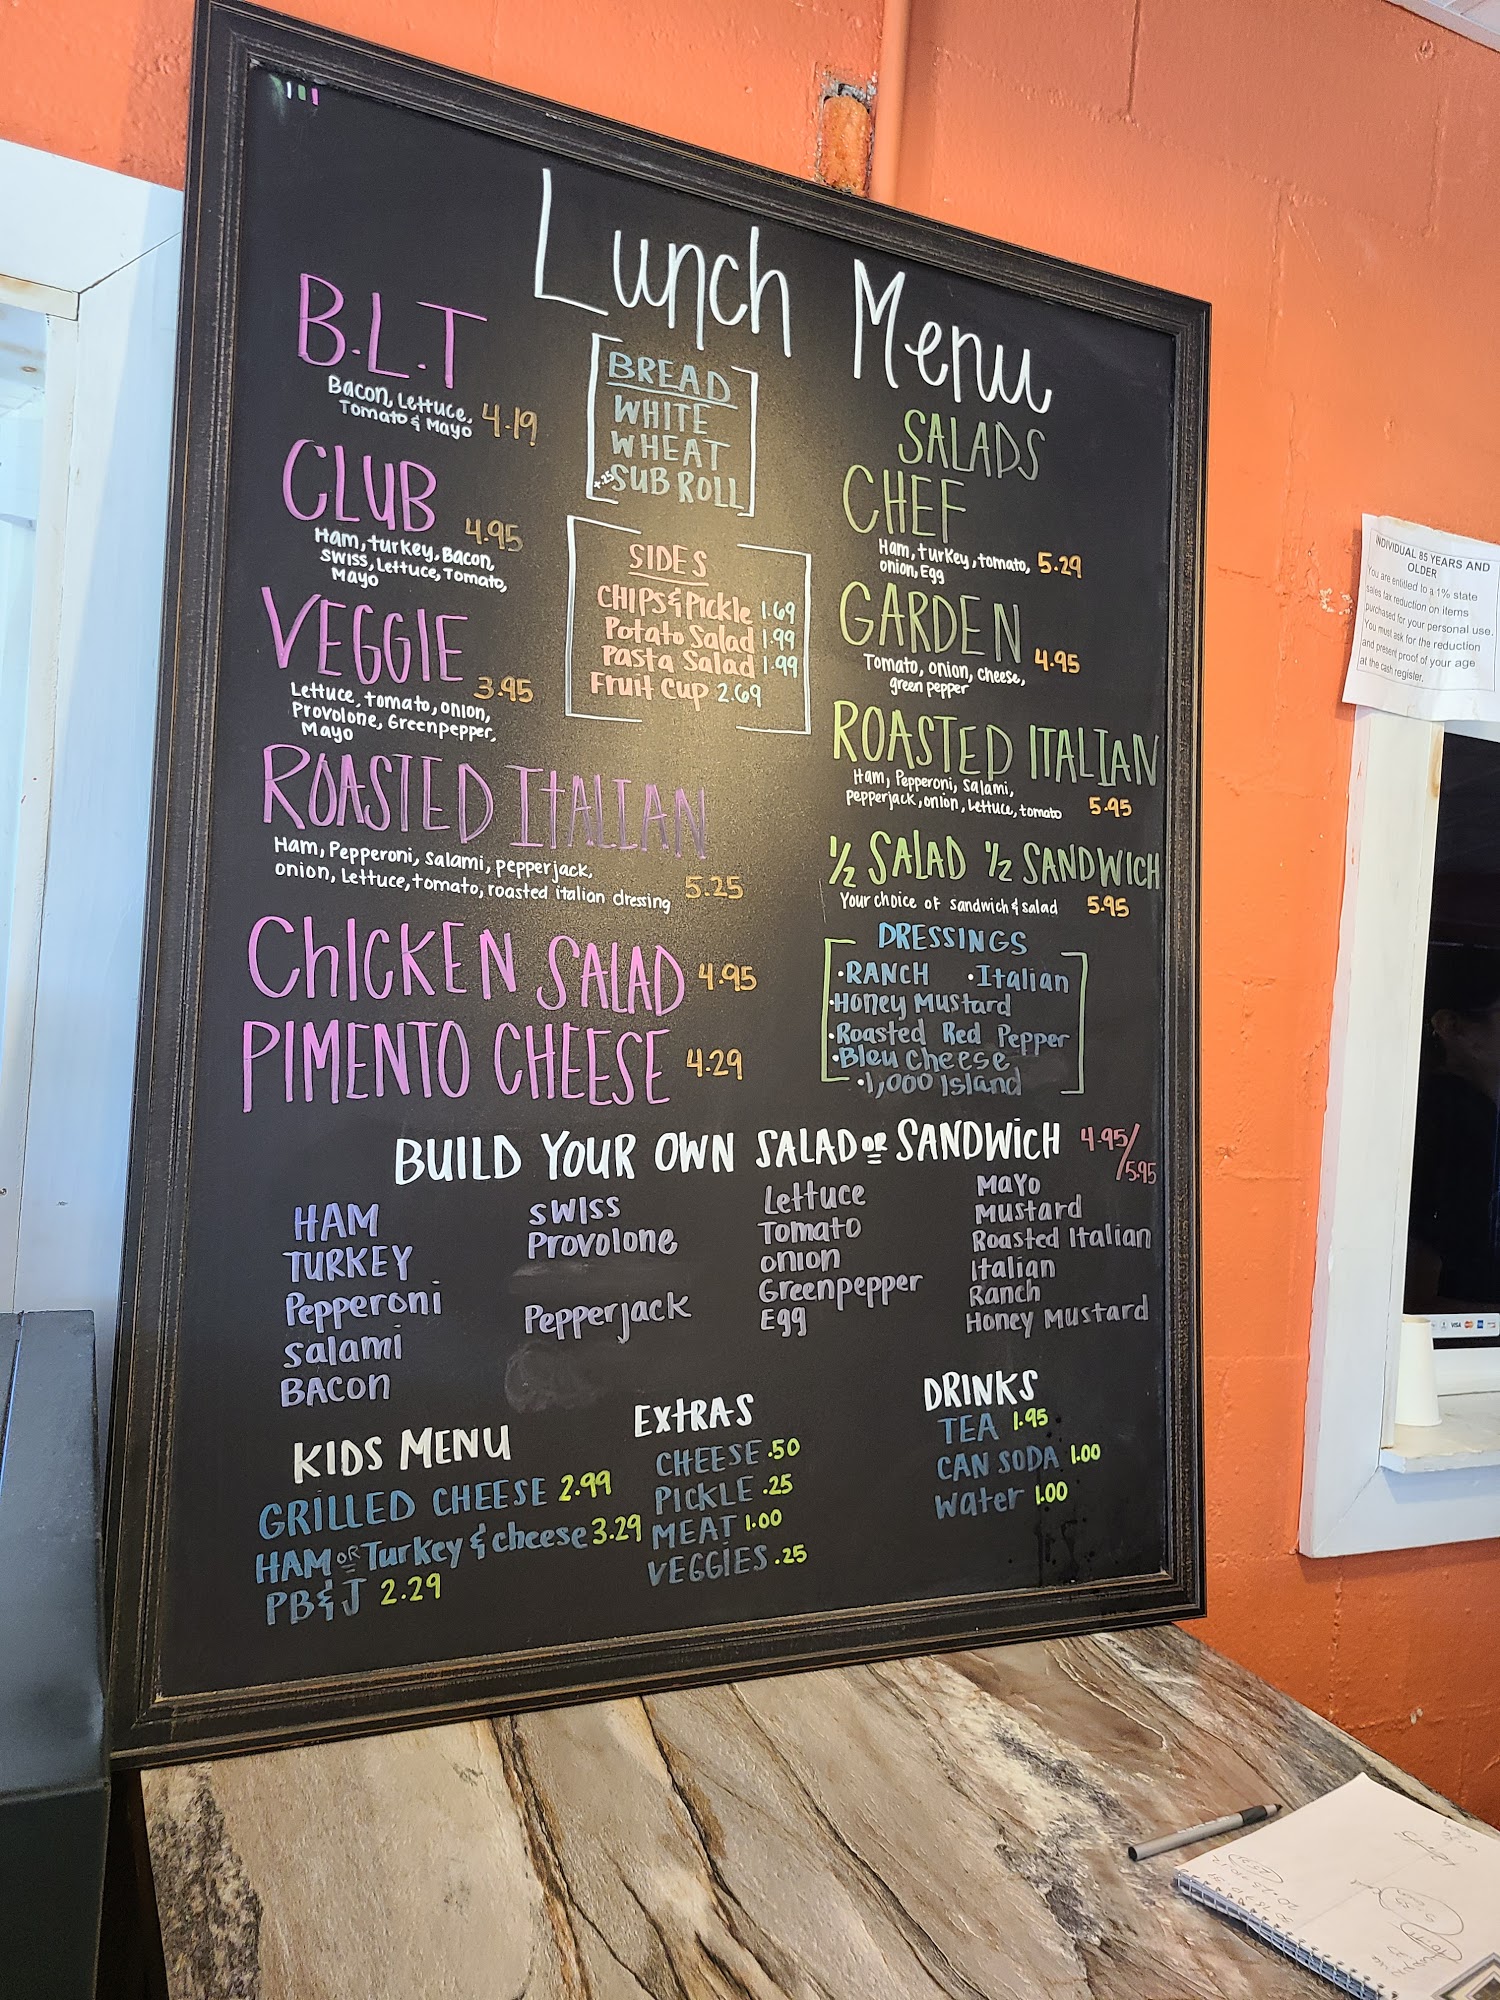 Lunch Menu
B.L.T
Bacon, Lettuce,
Tomato & Mayo 4.19
CLUB 4.95
Ham, turkey, Bacon,
swiss, Lettuce, Tomato,
Mayo
VEGGIE 3.95
Lettuce, tomato, onion,
Provolone, Greenpepper,
Mayo
ROASTED ITALIAN
Ham, Pepperoni, salami, pepperjack,
onion, Lettuce, tomato, roasted italian dressing 5.25
CHICKEN SALAD 4.95
PIMENTO CHEESE 4.29
BREAD
WHITE
WHEAT
+.25 SUB ROLL
SIDES
CHIPS & Pickle 1.69
Potato Salad 1.99
Pasta Salad 1.99
Fruit Cup 2.69
SALADS
CHEF
Ham, turkey, tomato, 5.29
onion, Egg
GARDEN 4.95
Tomato, onion, cheese,
green pepper
ROASTED ITALIAN
Ham, Pepperoni, Salami,
pepperjack, onion, Lettuce, tomato 5.95
1/2 SALAD 1/2 SANDWICH
Your choice of sandwich & salad 5.95
DRESSINGS
•RANCH •Italian
•Honey Mustard
•Roasted Red Pepper
•Bleu Cheese
•1,000 Island
BUILD YOUR OWN SALAD OR SANDWICH 4.95/5.95
HAM
TURKEY
Pepperoni
Salami
BACON
SWISS
Provolone
Pepperjack
Lettuce
Tomato
onion
Greenpepper
Egg
MAYO
Mustard
Roasted Italian
Italian
Ranch
Honey Mustard
KIDS MENU
GRILLED CHEESE 2.99
HAM OR Turkey & cheese 3.29
PB&J 2.29
EXTRAS
CHEESE .50
PICKLE .25
MEAT 1.00
VEGGIES .25
DRINKS
TEA 1.95
CAN SODA 1.00
Water 1.00
INDIVIDUAL 85 YEARS AND
OLDER
You are entitled to a 1% state
sales tax reduction on items
purchased for your personal use.
You must ask for the reduction
and present proof of your age
at the cash register.
VISA